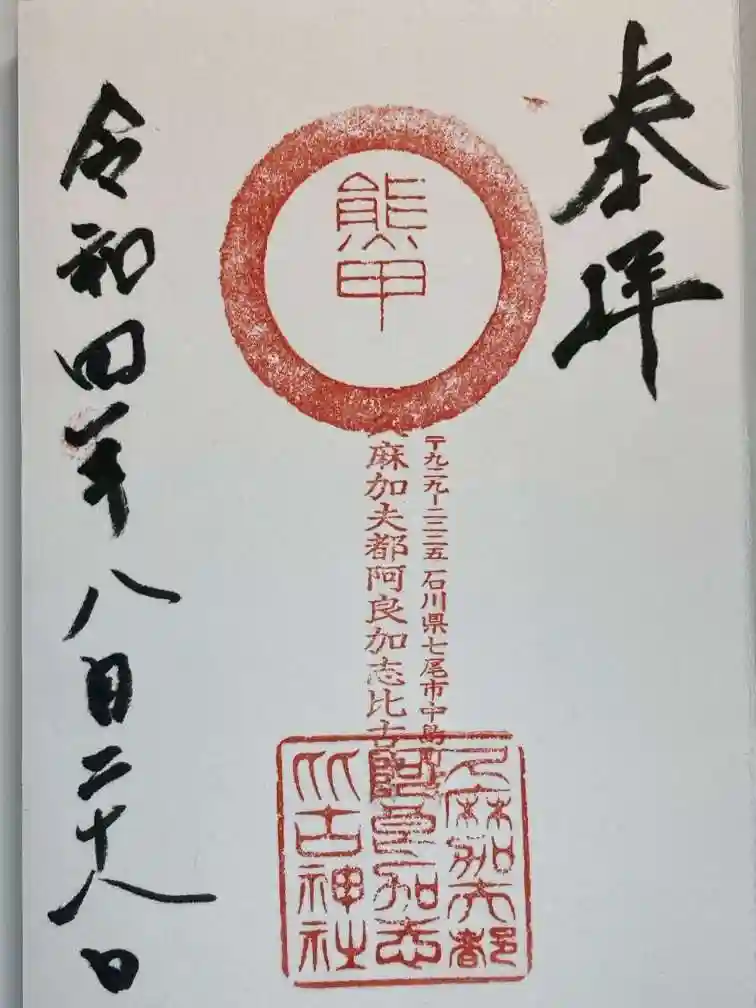 奉拝
〒九二九-二二二五 石川県七尾市中島
熊甲
麻加夫都阿良加志比古
久麻加夫都
阿良加志
比古神社
令和四年八月二十八日